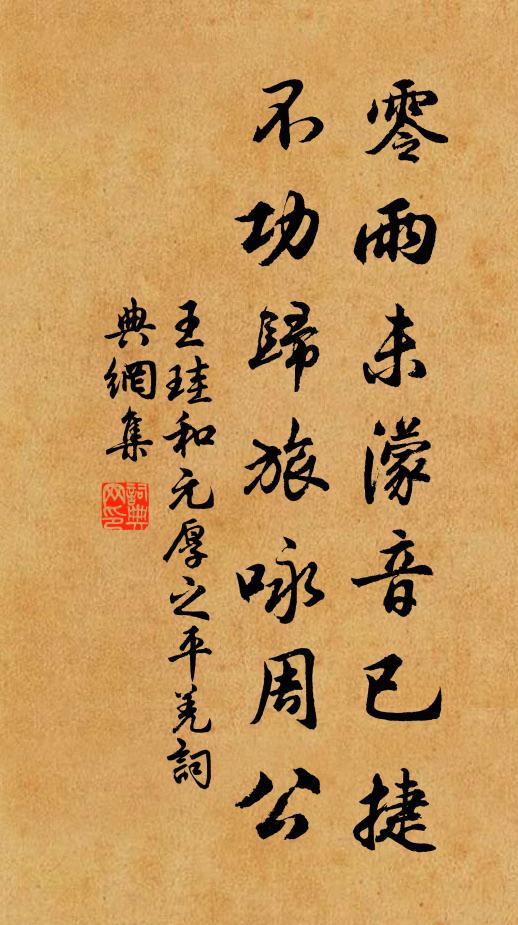 零雨未濛音已捷
不功歸旅咏周公
王珪和元厚之平羌詞
典網集
詞典網印